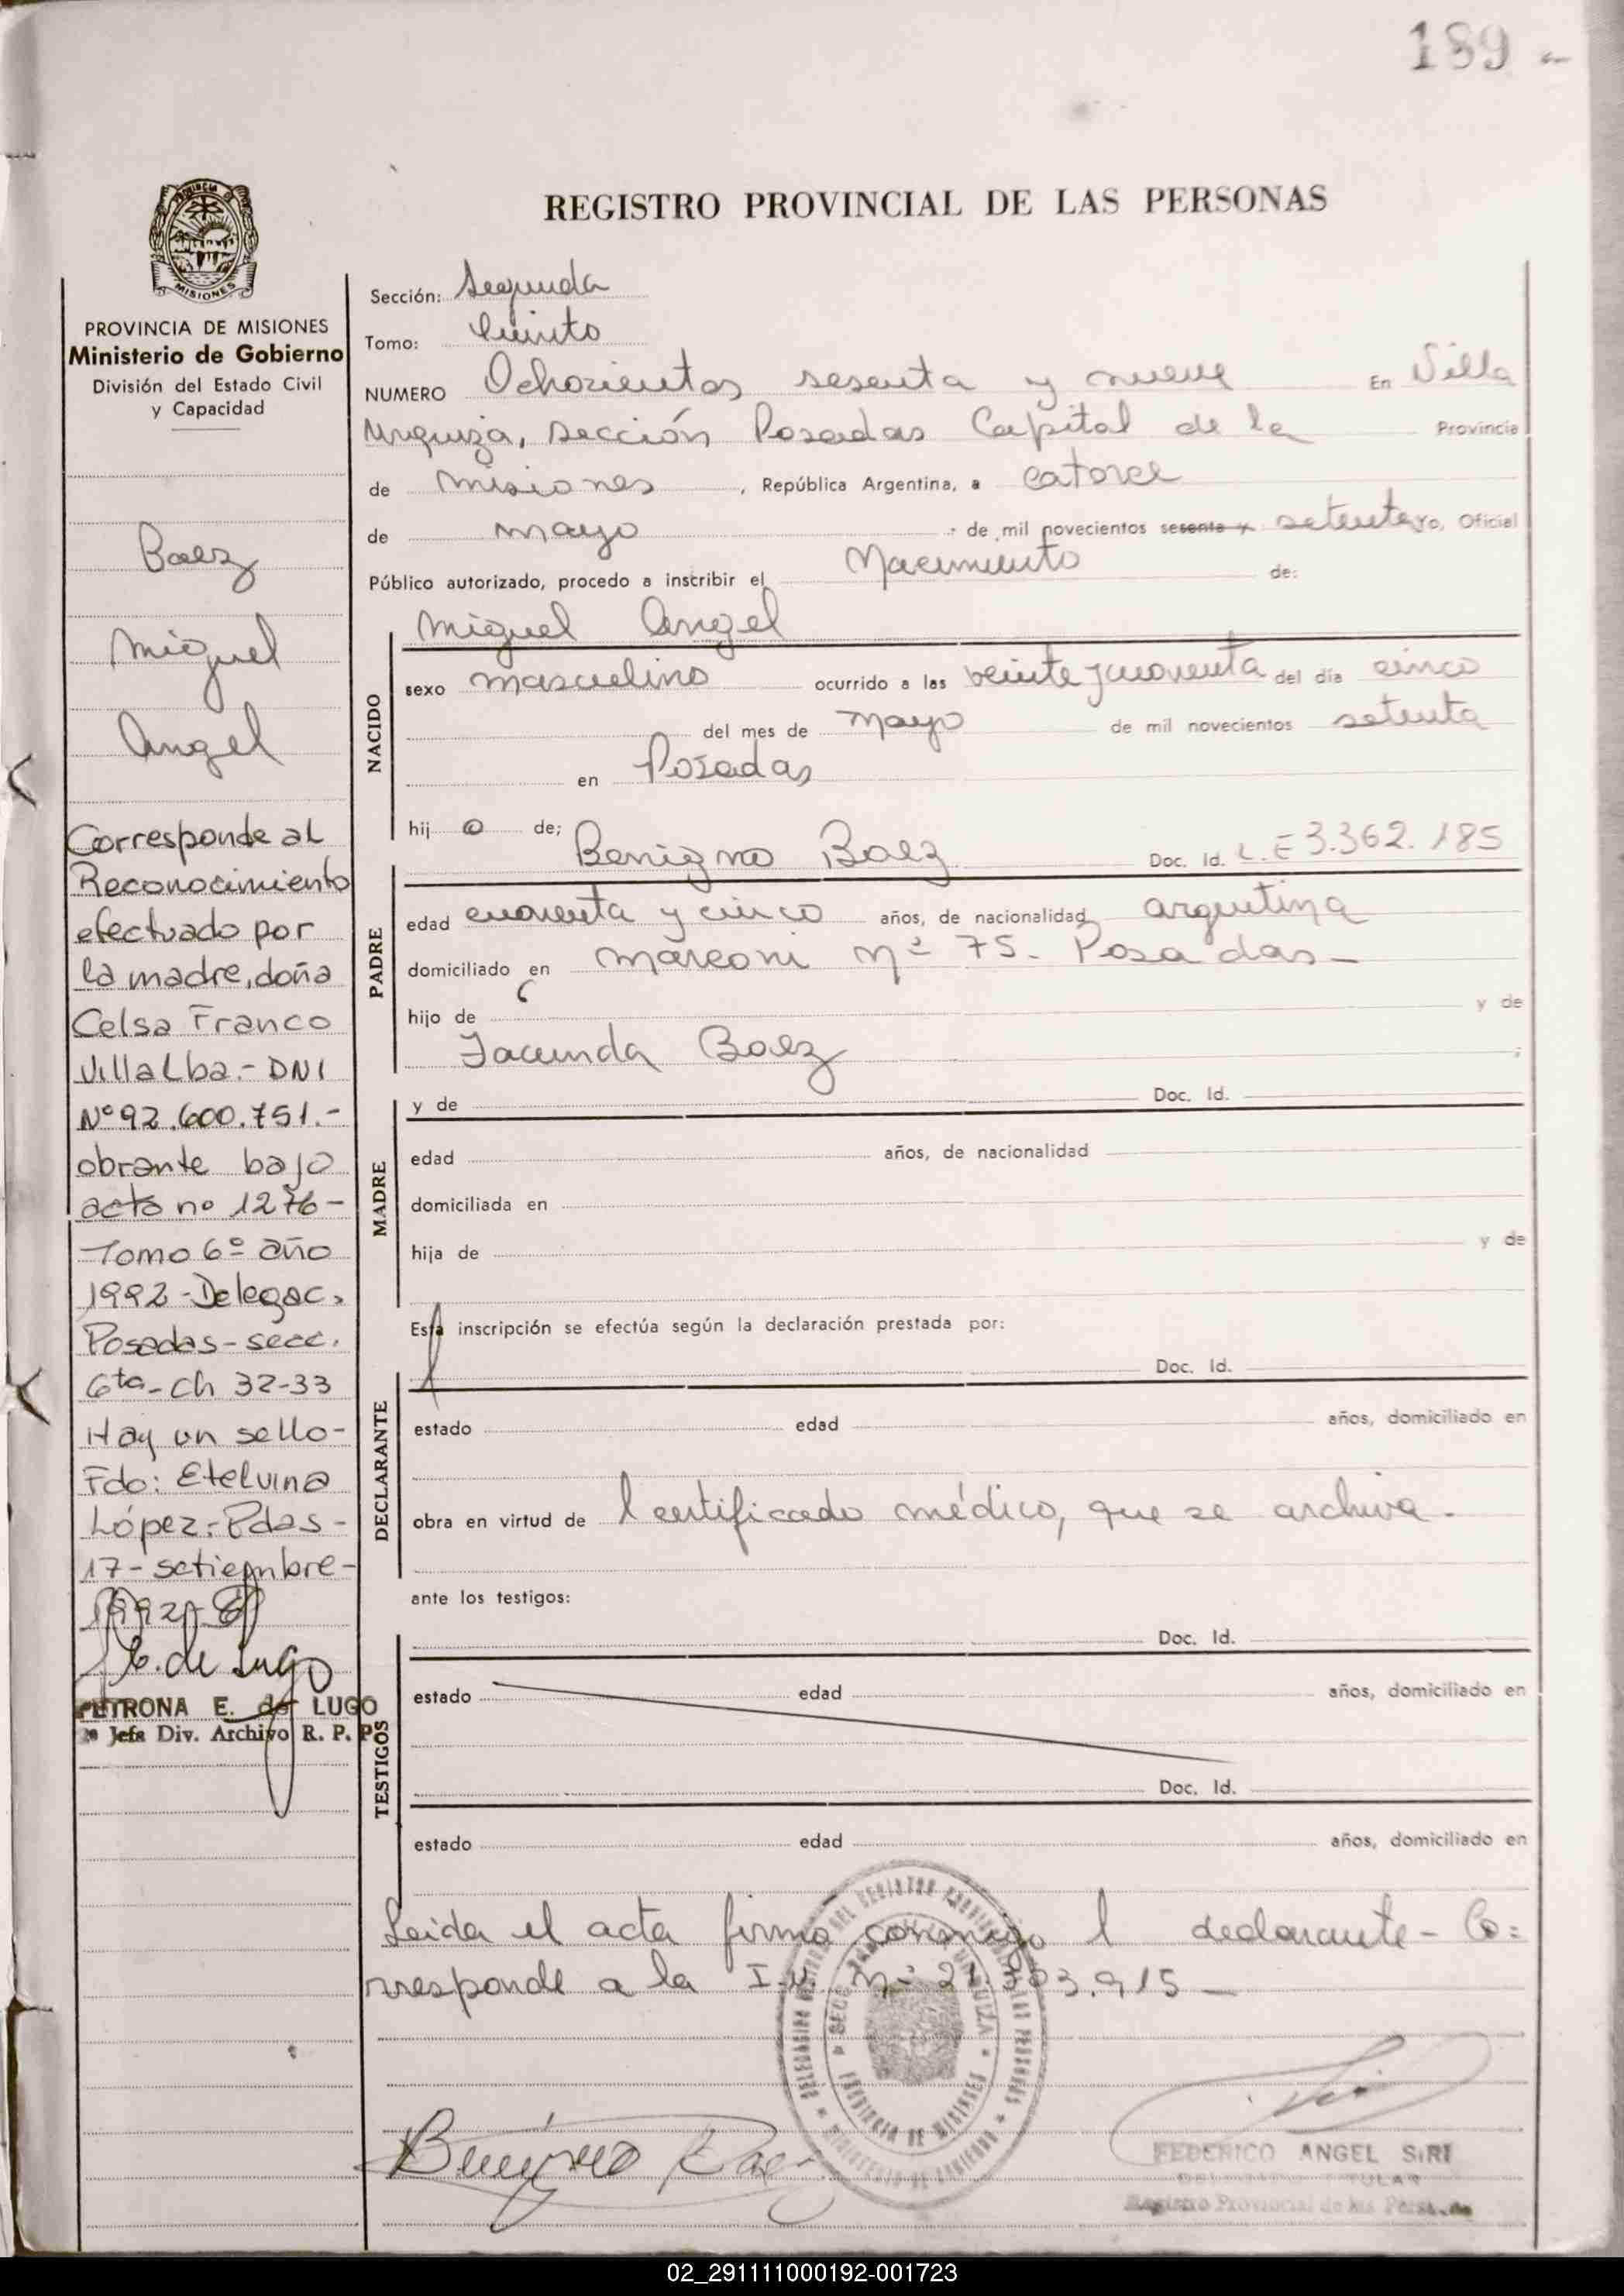 189 -
REGISTRO PROVINCIAL DE LAS PERSONAS
PROVINCIA DE MISIONES
Ministerio de Gobierno
División del Estado Civil
y Capacidad
Baez
Miguel
Angel
Corresponde al
Reconocimiento
efectuado por
la madre, doña
Celsa Franco
Villalba.- DNI
Nº 92.600.751.-
obrante bajo
acta nº 1276-
Tomo 6º año
1992 - Delegac.
Posadas - secc.
6ta - Ch 32-33
Hay un sello-
Fdo: Etelvina
López.- Pdas-
17 - setiembre-
1992.-
E. de Lugo
PETRONA E. de LUGO
Jefa Div. Archivo R. P. P.
Sección: Segunda
Tomo: Quinto
NUMERO Ochocientos sesenta y nueve En Villa
Urquiza, sección Posadas Capital de la Provincia
de Misiones, República Argentina, a catorce
de mayo de mil novecientos sesenta y setenta yo, Oficial
Público autorizado, procedo a inscribir el Nacimiento de:
Miguel Angel
NACIDO
sexo masculino ocurrido a las veinte y cuarenta del día cinco
del mes de mayo de mil novecientos setenta
en Posadas
hij o de;
Benigno Baez Doc. Id. L.E 3.362.185
PADRE
edad cuarenta y cinco años, de nacionalidad argentina
domiciliado en Marconi nº 75.- Posadas-
hijo de y de
Jacunda Baez ;
y de Doc. Id.
MADRE
edad años, de nacionalidad
domiciliada en
hija de y de
Esta inscripción se efectúa según la declaración prestada por:
Doc. Id.
DECLARANTE
estado edad años, domiciliado en
obra en virtud de l certificado médico, que se archiva.
ante los testigos:
Doc. Id.
TESTIGOS
estado edad años, domiciliado en
Doc. Id.
estado edad años, domiciliado en
Leida el acta firma conmigo l declarante- Co=
rresponde a la nº 903.915-
PROVINCIA DE MISIONES
Benigno Baez
FEDERICO ANGEL SIRI
Registro Provincial de las
02_291111000192-001723